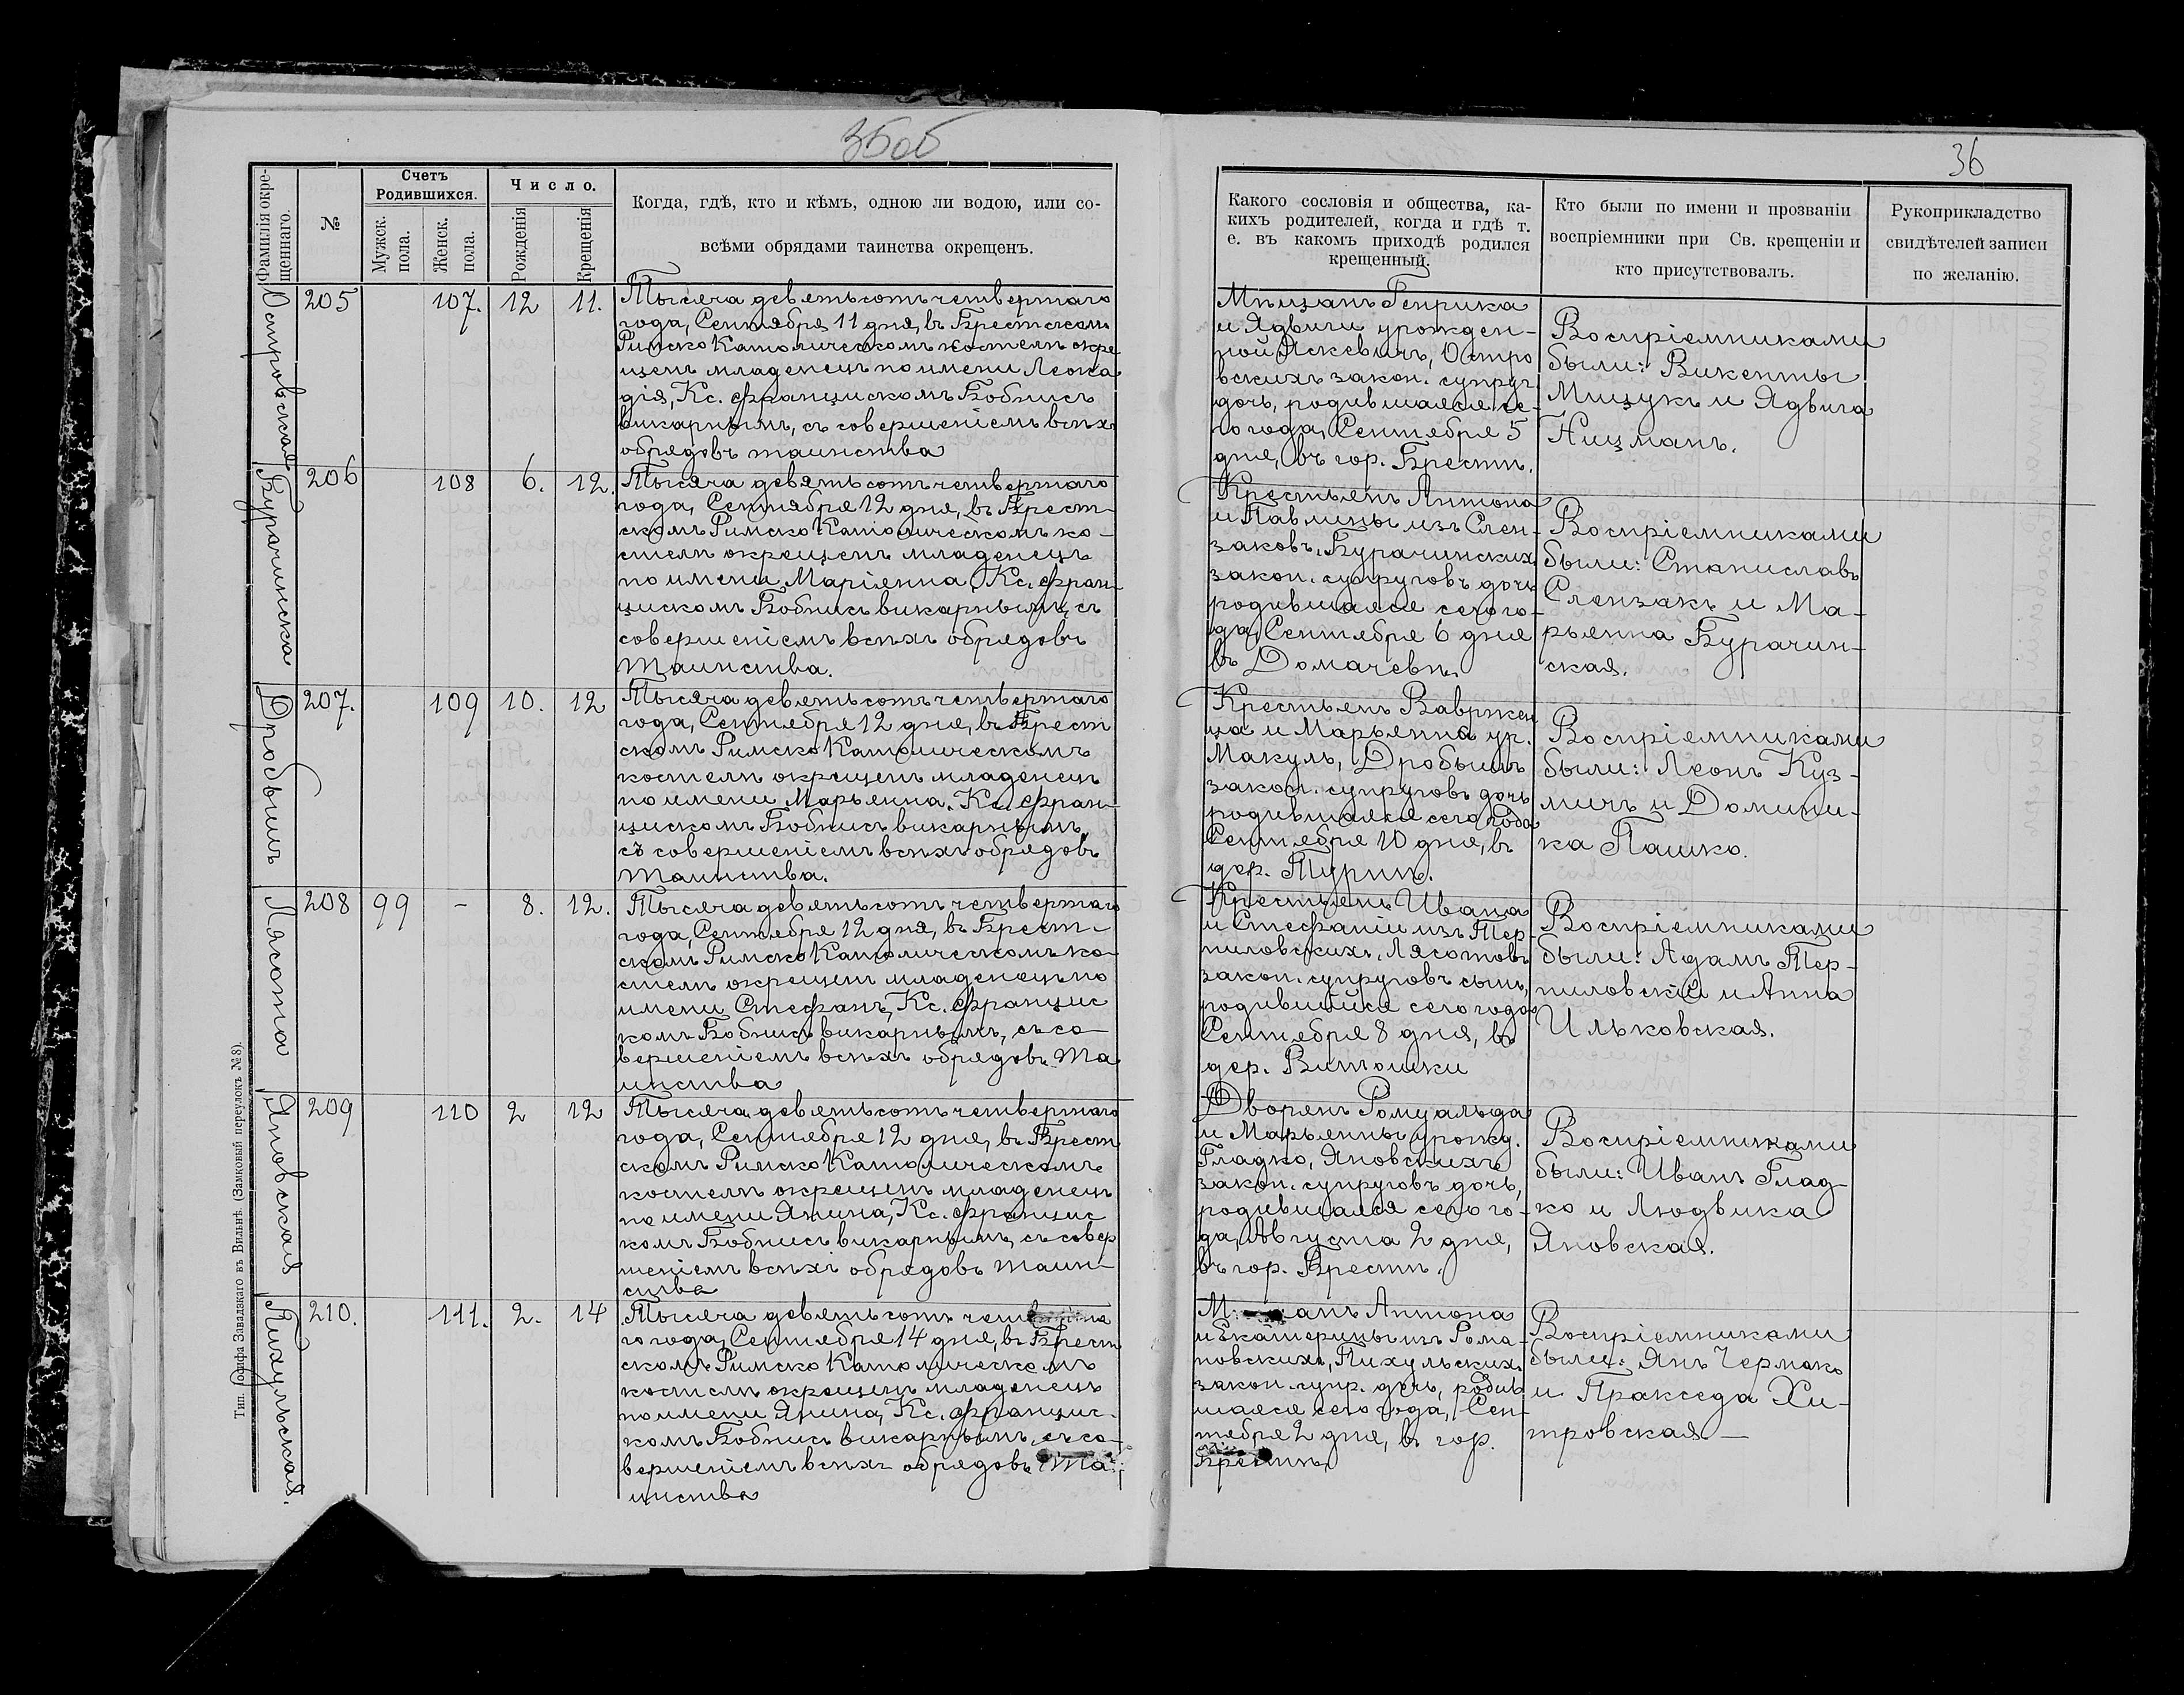 35об
36
Фамилія окрещеннаго.
№
Счетъ Родившихся.
Мужск. пола.
Женск. пола.
Число.
Рожденія
Крещенія
Когда, гдѣ, кто и кѣмъ, одною ли водою, или со-
всѣми обрядами таинства окрещенъ.
Какого сословія и общества, ка-
кихъ родителей, когда и гдѣ т.
е. въ какомъ приходѣ родился
крещенный.
Кто были по имени и прозваніи
воспріемники при Св. крещеніи и
кто присутствовалъ.
Рукоприкладство
свидѣтелей записи
по желанію.
Островская
205
107.
12
11.
Тысяча девятьсотъ четвертаго
года, Сентября 11 дня, въ Брестскомъ
Римско Католическомъ костелѣ окре
щенъ младенецъ по имени Леока
дія, Кс. Францискомъ Бобнисъ
викарнымъ, съ совершеніемъ всѣхъ
обрядовъ таинства
Мѣщанъ Генрика
и Ядвиги урожден-
ной Яскевичъ, Остро
вскихъ закон. супруг.
дочь, родившаяся се-
го года, Сентября 5
дня, въ гор. Брестѣ.
Воспріемниками
были: Викенты
Мищукъ и Ядвига
Ницманъ.
Бурачинска
206
108
6.
12.
Тысяча девятьсотъ четвертаго
года, Сентября 12 дня, въ Брест-
скомъ Римско Католическомъ ко-
стелѣ окрещенъ младенецъ
по имени Маріенна, Кс. Фран-
цискомъ Бобнисъ викарнымъ, съ
совершеніемъ всѣхъ обрядовъ
таинства.
Крестьянъ Антона
и Павлины изъ Слен-
заковъ, Бурачинскихъ
закон. супруговъ дочь
родившаяся сего го-
да, Сентября 6 дня
въ Домачевѣ.
Воспріемниками
были: Станиславъ
Слензакъ и Ма-
рьянна Бурачин-
ская.
Дробышъ
207.
109
10.
12
Тысяча девятьсотъ четвертаго
года, Сентября 12 дня, въ Брест
скомъ Римско Католическомъ
костелѣ окрещенъ младенецъ
по имени Марьянна. Кс. Фран-
цискомъ Бобнисъ викарнымъ,
съ совершеніемъ всѣхъ обрядовъ
таинства.
Крестьянъ Вавржен
ца и Марьянна ур.
Макуль, Дробышъ
закон. супруговъ дочь
родившаяся сего года
Сентября 10 дня, въ
дер. Турнѣ.
Воспріемниками
были: Леонъ Куз-
мичъ и Домини-
ка Пашко.
Лясота
208
99
-
8.
12.
Тысяча девятьсотъ четвертаго
года, Сентября 12 дня, въ Брест-
скомъ Римско Католическомъ ко-
стелѣ окрещенъ младенецъ по
имени Стефанъ, Кс. Францис
комъ Бобнисъ викарнымъ, съ со-
вершеніемъ всѣхъ обрядовъ та
инства
Крестьянъ Ивана
и Стефаніи изъ Тер-
пиловскихъ, Лясотовъ
закон. супруговъ сынъ,
родившійся сего года
Сентября 8 дня, въ
дер. Витошки
Воспріемниками
были: Адамъ Тер-
пиловскій и Анна
Ильковская.
Яновская
209
110
2
12
Тысяча девятьсотъ четвертаго
года, Сентября 12 дня, въ Брест
скомъ Римско Католическомъ
костелѣ окрещенъ младенецъ
по имени Янина, Кс. Францис
комъ Бобнисъ викарнымъ, съ совер
шеніемъ всѣхъ обрядовъ таин-
ства
Дворянъ Ромуальда
и Марьянны урожд.
Гладко, Яновскихъ
закон. супруговъ дочь,
родившаяся сего го-
да, Августа 2 дня,
въ гор. Брестѣ.
Воспріемниками
были: Иванъ Глад-
ко и Людвика
Яновская.
Пихульская.
210.
111.
2.
14
Тысяча девятьсотъ
го года, Сентября 14 дня, въ Брест
скомъ Римско Католическомъ
костелѣ окрещенъ младенецъ
по имени Янина, Кс. Францис-
комъ Бобнисъ викарнымъ, съ со-
вершеніемъ всѣхъ обрядовъ та
инства
Антона
и Екатерины изъ Рома-
новскихъ, Пихульскихъ
закон. супр. дочь, родив
шаяся сего года, Сен-
тября 2 дня, въ гор.
Брестѣ.
Воспріемниками
были: Янъ Чермакъ
и Пракседа Хи-
тровская—
Тип. Іосифа Завадзкаго въ Вильнѣ. (Замковый переулокъ № 8).